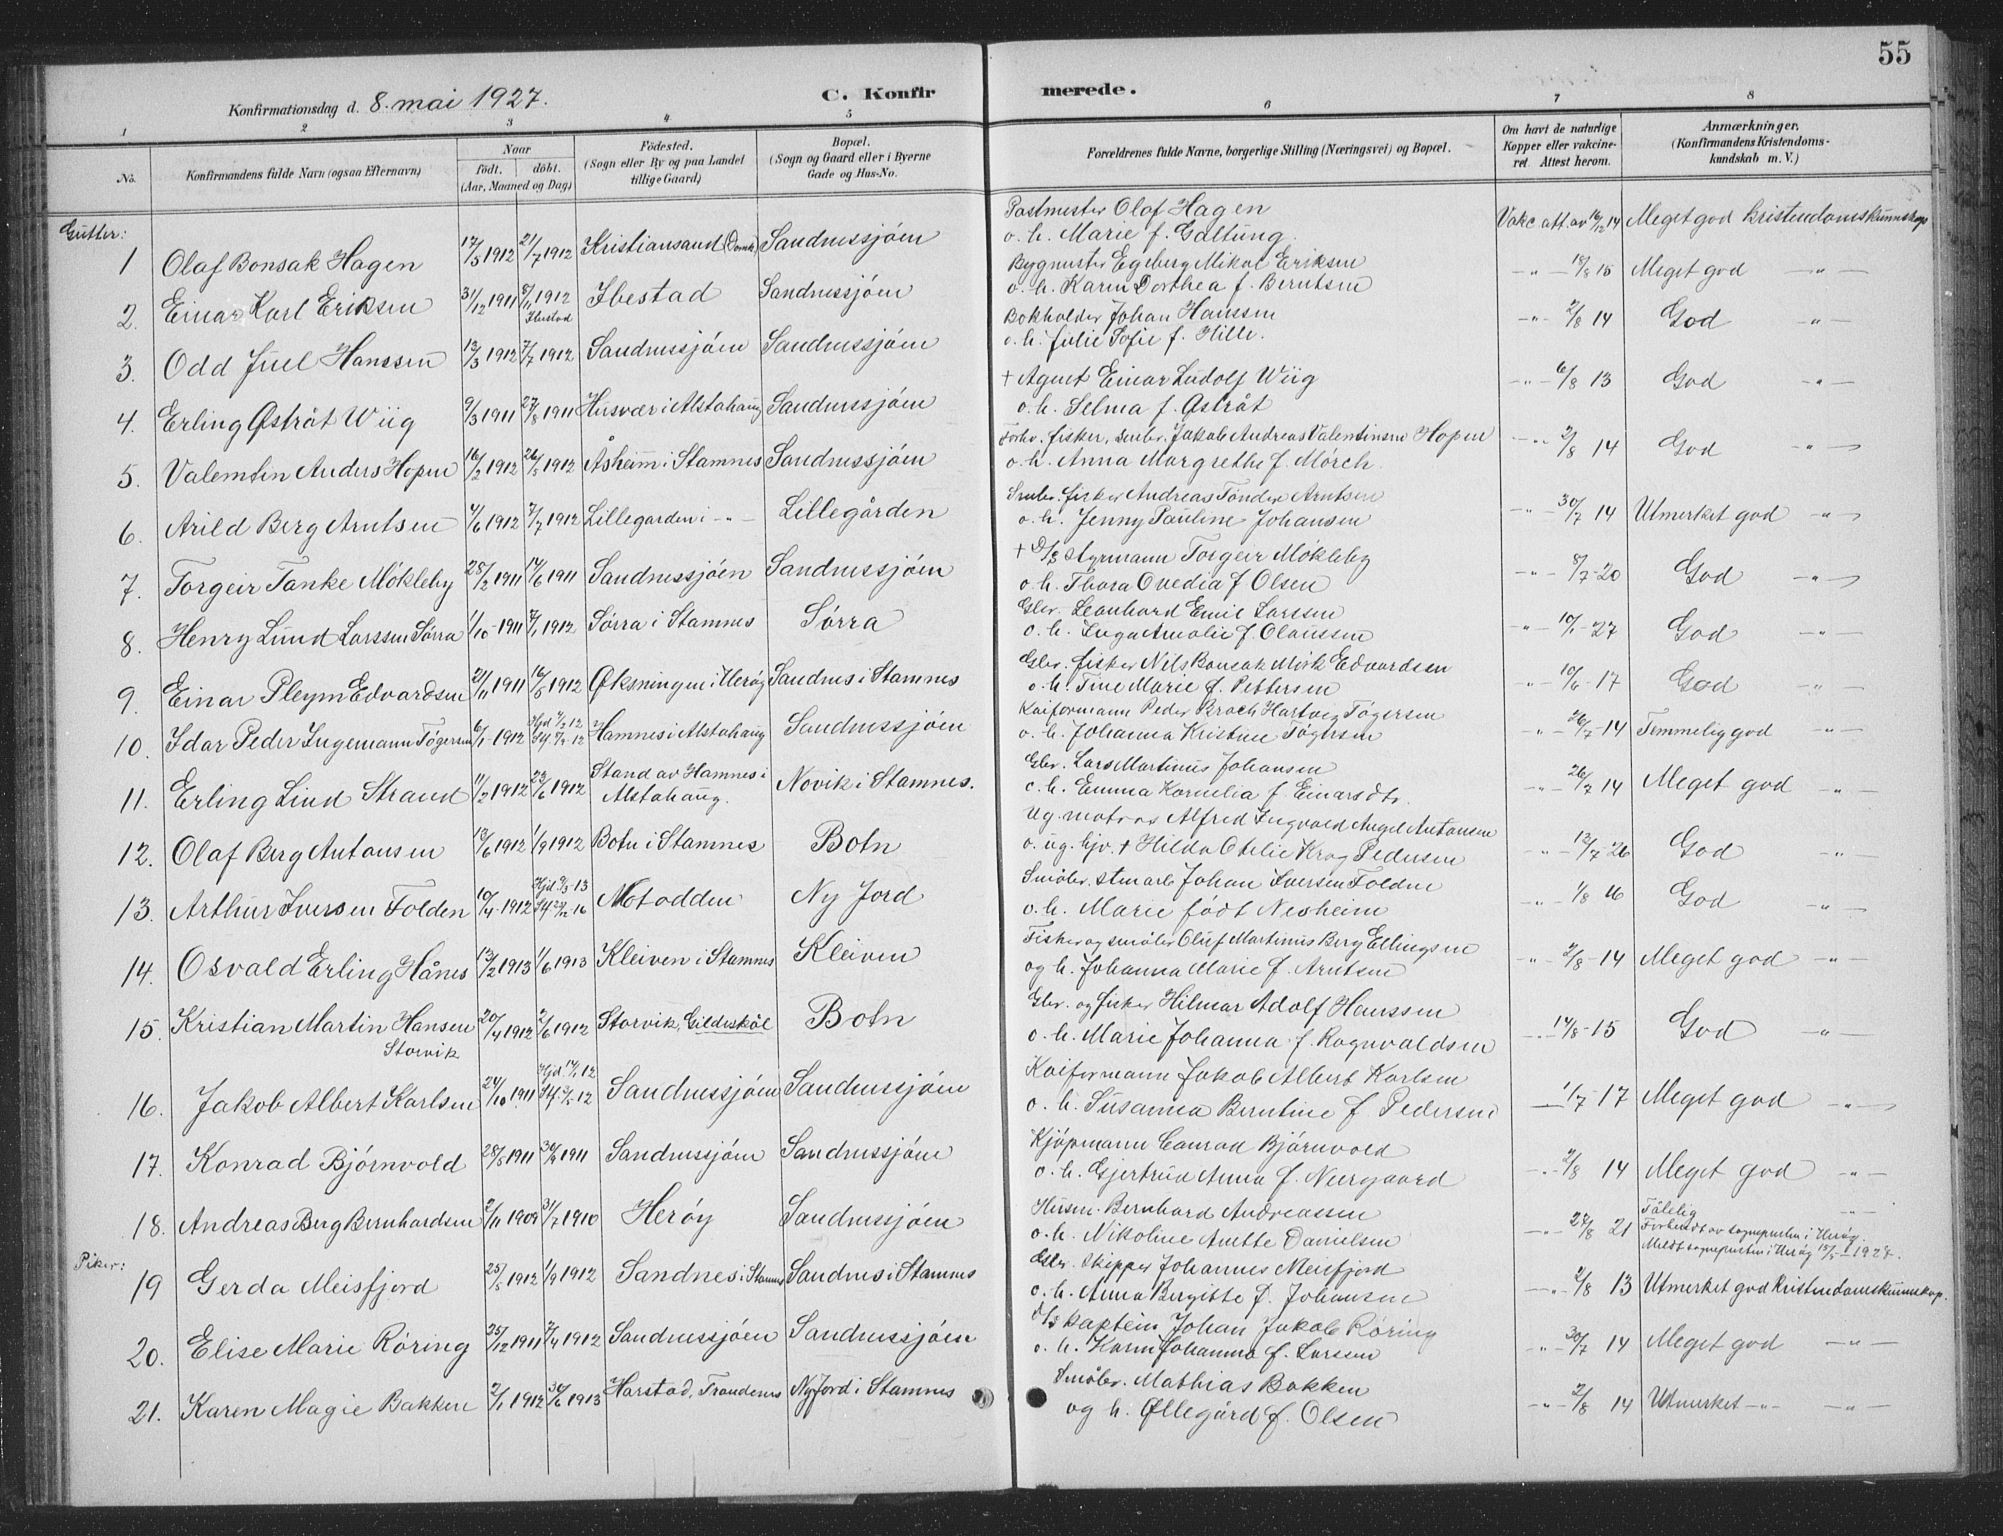 55
Konfirmationsdag d. 8. mai 1927.
C. Konfirmerede.
1 2 3 4 5 6 7 8
No. Konfirmandens fulde Navn (ogsaa Efternavn) Naar født. døbt. (Aar, Maaned og Dag) Fødested. (Sogn eller By og paa Landet tillige Gaard) Bopæl. (Sogn og Gaard eller i Byerne Gade og Hus-No. Forældrenes fulde Navne, borgerlige Stilling (Næringsvei) og Bopæl. Om havt de naturlige Kopper eller vakcineret Attest herom. Anmærkninger. (Konfirmandens Kristendomskundskab m. V.)
Gutter:
1 Olaf Bonsak Hagen 17/5 1912 21/7 1912 Kristiansand (Domk) Sandnessjøen Postmester Olaf Hagen Vakc. att. av 16/12 14 Meget god kristendomskunnskap
o. h. Marie f. Galtung.
2. Einar Karl Eriksen 31/12 1911 5/4 1912 Ibestad Ibestad Sandnessjøen Bygmester Egeberg Mikal Eriksen -"- 18/8 15 Meget god -"-
o. h. Karen Dorthea f. Berntsen
3. Odd Juel Hanssen 13/3 1912 7/7 1912 Sandnessjøen Sandnessjøen Bokholder Johan Hanssen -"- 2/8 14 God -"-
o. h. Julie Sofie f. Hille.
4. Erling Østråt Wiig 9/3 1911 27/8 1911 Husvær i Alstahaug Sandnessjøen + Agent Einar Ludolf Wiig -"- 6/8 13 God -"-
o. h. Selma f. Østråt
5. Valentin Anders Hopen 16/2 1912 26/5 1912 Åsheim i Stamnes Sandnessjøen Forhv. fisker, småbr. Jakob Andreas Valentinsen Hopen -"- 2/8 14 God -"-
o. h. Anna Margrethe f. Mørch.
6. Arild Berg Arntsen 4/6 1912 7/7 1912 Lillegarden i -"- Lillegården Småbr. fisker Andreas Tønder Arntsen -"- 30/7 14 Utmerket god -"-
o. h. Jenny Pauline Johansen
7. Torgeir Tanke Møkleby 28/2 1911 14/6 1911 Sandnessjøen Sandnessjøen + D/S styrmann Torgeir Møkleby -"- 8/7-20 God -"-
o. h. Thora Ovedia f Olsen
8. Henry Lund Larssen Sørra 1/10-1911 7/1 1912 Sørra i Stamnes Sørra Gbr. Leonhard Emil Larssen -"- 10/1-27 God -"-
o. h. Inga Amalie f. Olaussen
9. Einar Pleym Edvardsen 21/11 1911 16/5 1912 Øksningen i Herøy Sandnes i Stamnes Gbr. fisker Nils Bonsak Mørk Edvardsen -"- 10/6-17 God -"-
o. h. Tine Marie f. Pettersen
10. Idar Peder Ingemann Tøgersen 6/1-1912 Hjd 7/2 12 Hamnes i Alstahaug Sandnessjøen Kaiformann Peder Broch Hartvig Tøgersen -"- 26/7-14 Temmelig god -"-
o. h. Johanna Kristine Tøgersen
11. Erling Lind Strand 11/2 1912 23/6 1912 Stand av Hamnes i Alstahaug. Novik i Stamnes. Gbr. Lars Martinus Johansen -"- 26/7 14 Meget god -"-
o. h. Emma Kornelia f. Einarsdtr.
12. Olaf Berg Antonsen 13/6 1912 1/9 1912 Botn i Stamnes Botn Ug. matros Alfred Ingvald Angel Antonsen -"- 13/7 26 God -"-
o. ug. hjv. + Hilda Otelie Krog Pedersen
13. Arthur Iversen Folden 10/4-1912 Notodden Ny Jord Småbr. stenarb Johan Iversen Folden -"- 1/8 16 God -"-
o. h. Marie født Nesheim
14. Osvald Erling Hånes 13/2 1913 1/6 1913 Kleiven i Stamnes Kleiven Fisker og småbr Oluf Martinus Berg Ellingsen -"- 2/8-14 Meget god -"-
og h. Johanna Marie f. Arntsen
15. Kristian Martin Hansen Storvik 20/4 1912 2/6 1912 Storvik, Gildeskål Botn Gbr. og fisker Hilmar Adolf Hanssen -"- 14/8-15 God -"-
o. h. Marie Johanna f. Ragnvaldsen
16. Jakob Albert Karlsen 24/10 1911 Sandnessjøen Sandnessjøen Kaiformann Jakob Albert Karlsen -"- 1/7-17 Meget god -"-
o. h. Susanna Berntine f. Pedersen
17. Konrad Bjørnvold 28/5 1911 1911 Sandnessjøen Sandnessjøen Kjøpmann Conrad Bjørnvold -"- 2/8 14 Meget god -"-
o. h. Gjertrud Anna f. Neergaard
18. Andreas Berg Bernhardsen 2/11 1909 31/7 1910 Herøy Sandnessjøen Husm. Bernhard Andreassen -"- 27/8 21 Tålelig -"-
o. h. Nikoline Anette Danielsen Forberedt av sognepresten i Herøy.
Meldt sognepresten i Herøy
Piker:
19 Gerda Meisfjord 25/5 1912 1/9 1912 Sandnes i Stamnes Sandnes i Stamnes Gbr. skipper Johannes Meisfjord -"- 2/8 13 Utmerket god Kristendomskunnskap.
o. h. Anna Bergitte f. Johansen
20. Elise Marie Røring 25/12 1911 1912 Sandnessjøen Sandnessjøen D/S kaptein Johan Jakob Røring -"- 30/7 14 Meget god -"-
o. h. Karen Johanna f. Larssen
21. Karen Magie Bakken 2/1 1912 1913 Harstad, Trondenes Ny Jord i Stamnes Småbr. Mathias Bakken -"- 2/8 14 Utmerket -"- -"-
og h. Øllegård f. Olsen